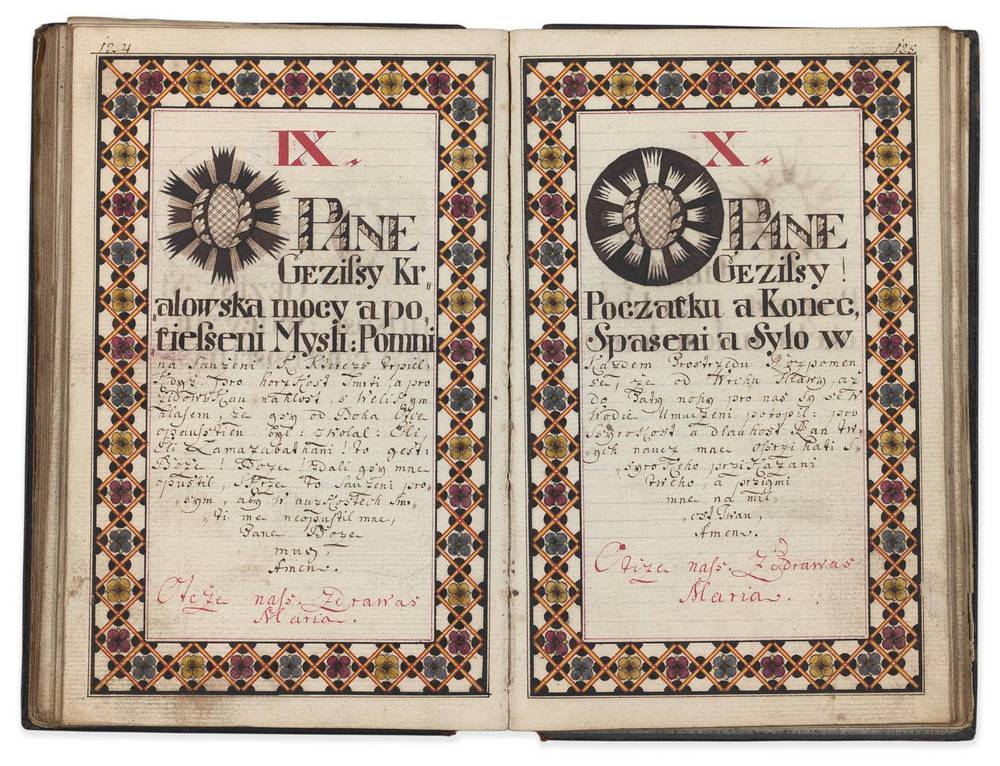 124
IX.
O PANE
GEZiſsy Kr„
„alowska mocy a po„
tieſseni Mysli: Pomni
na Sauzeni, K Kterezs trpiel,
Kdyz pro horzkost Smrti, a pro
zidowskau nahlost, s Welikym
hlasem, ze gsy od Boha Otce
opaustien byl: zwolal: Eli
Eli Lamazabathani! to gest:
Boze! Boze! dali gsy mne
opustil, Skrze to Sauzeni pro„
„sym, aby w auzkostech Sm„
„ti me neopustil mne,
Pane Boze
mug,
Amen.
Otcže naſs. Zdrawas
Maria.
125
X.
O PANE
GEZiſsy!
Poczatku a Konec,
Spaseni a Sylo w
Każdem Prostrzedu Rozpomen
se, ze od Wrchu Hlawy, az
do Paty nohy pro nas Sy se w
Wodie Umuczeni potopil: pro
Ssyrokost a dlauhost Ran tw„
„ych naucz mne
Ssyrokeho przikazani
tweho, a przigmi
mne na mil„
„ostiwau,
Amen.
Otcže naſs. Zdrawas
Maria.